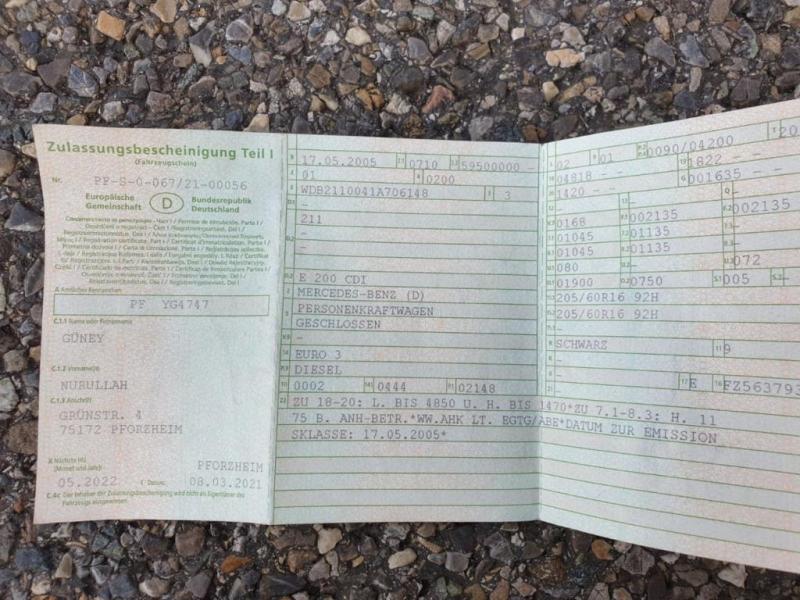 Zulassungsbescheinigung Teil I
(Fahrzeugschein)
Nr. PF-S-0-067/21-00056
Europäische Gemeinschaft
D
Bundesrepublik Deutschland
A Amtliches Kennzeichen
PF YG4747
C.1.1 Name oder Firmenname
GÜNEY
C.1.2 Vorname(n)
NURULLAH
C.1.3 Anschrift
GRÜNSTR. 4
75172 PFORZHEIM
Nächste HU
(Monat und Jahr)
PFORZHEIM
05.2022
Datum
08.03.2021
C.4c Der Inhaber der Zulassungsbescheinigung wird nicht als Eigentümer des
Fahrzeugs ausgewiesen.
B 17.05.2005 2.1 0710 2.2 59500000 -
J 01 4 0200
E WDB2110041A706148 3 3
-
211
-
D.3 E 200 CDI
2 MERCEDES-BENZ (D)
5 PERSONENKRAFTWAGEN
GESCHLOSSEN
V.9 -
14 EURO 3
P.3 DIESEL
10 0002 14.1 0444 P.1 02148
22 ZU 18-20: L. BIS 4850 U. H. BIS 1470*ZU 7.1-8.3: H. 11
75 B. ANH-BETR.*WW.AHK LT. EGTG/ABE*DATUM ZUR EMISSION
SKLASSE: 17.05.2005*
L 02 9 01 P.2 P.4 0090/04200 T 20
18 04818 - - 19 1822 - -
20 1420 - - G 001635 - -
0168 002135 002135
01045 01135
01045 01135
U.1 080 U.3 072
O.1 01900 O.2 0750 S.1 005 S.2 -
15.1 205/60R16 92H
15.2 205/60R16 92H
15.3 -
R SCHWARZ 11 9
K -
17 E 16 FZ563793